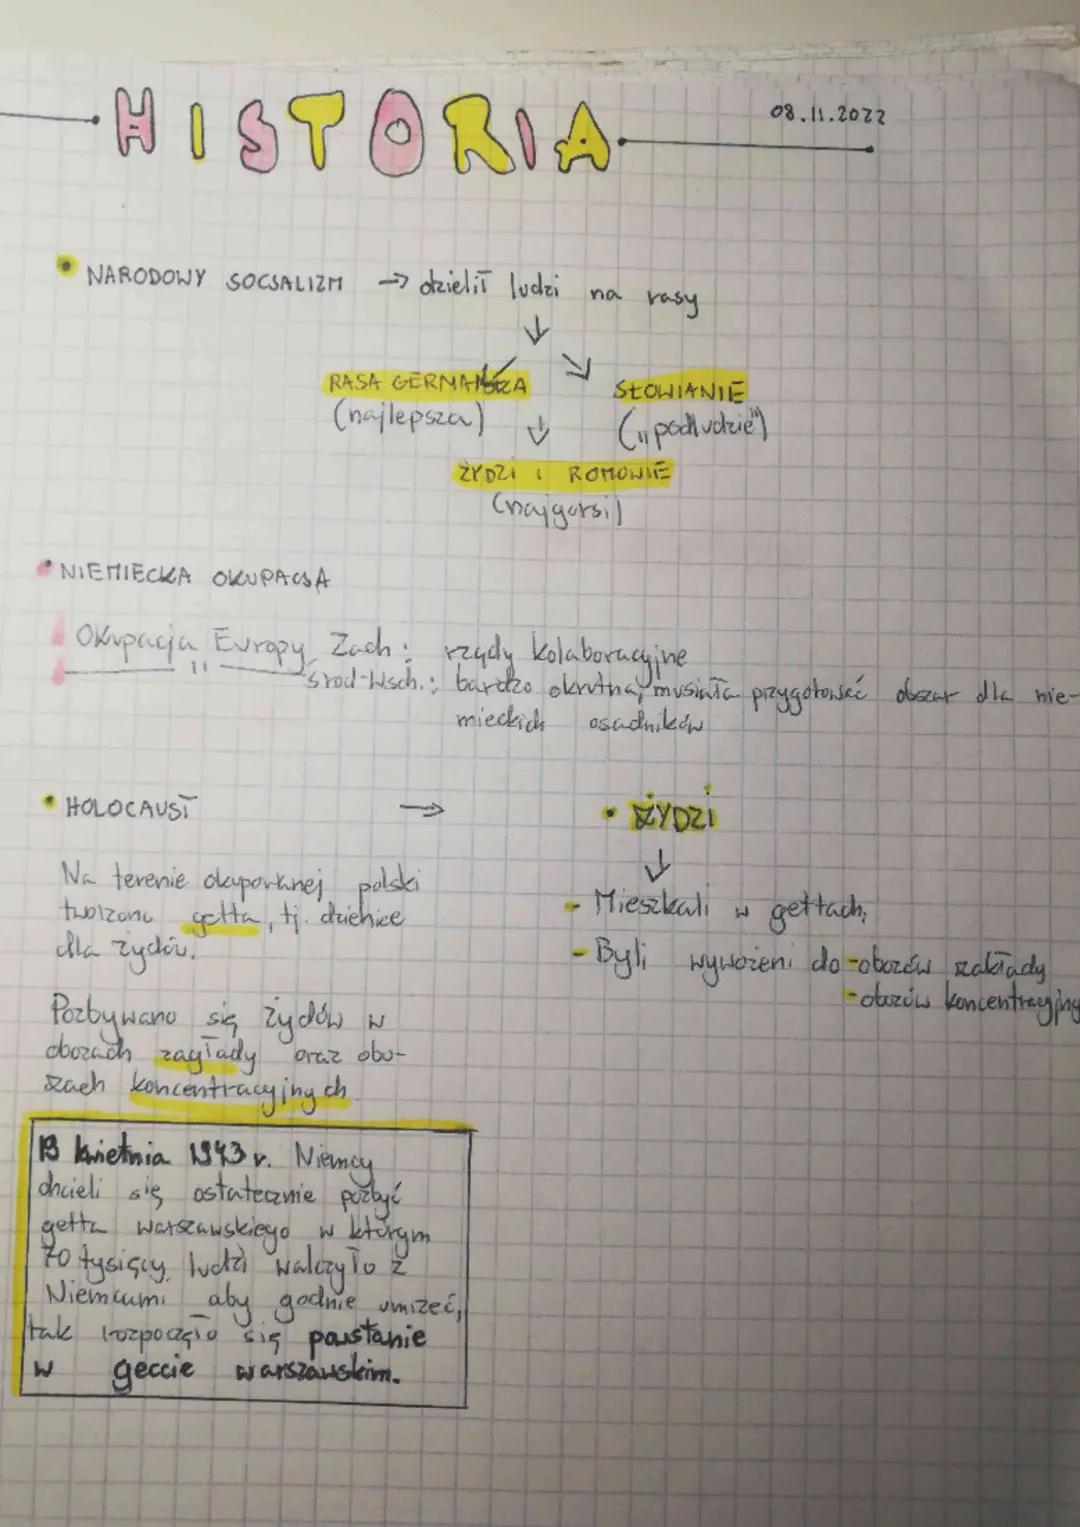 HISTORIA
08.11.2022
• NARODOWY SOCJALIZM → dzielił ludzi na rasy
RASA GERMAŃSKA
(najlepsza)
SŁOWIANIE
(„podludzie")
ŻYDZI I ROMOWIE
(najgorsi)
• NIEMIECKA OKUPACJA
Okupacja Europy Zach: rządy kolaboracyjne
—— 11 —— Środ-Wsch.: bardzo okrutna, musiała przygotować obszar dla nie-
mieckich osadników
• HOLOCAUST →
Na terenie okupowanej polski
tworzono getta, tj. dzielnice
dla żydów.
Pozbywano się żydów w
obozach zagłady oraz obo-
zach koncentracyjnych
• ŻYDZI
- Mieszkali w gettach,
- Byli wywożeni do - obozów zakłady
- obozów koncentracyjny
kwietnia 1943 r. Niemcy
chcieli się ostatecznie pozbyć
getta warszawskiego w którym
70 tysięcy ludzi walczyło z
Niemcami aby godnie umrzeć,
tak rozpoczęło się powstanie
w geccie warszawskim.